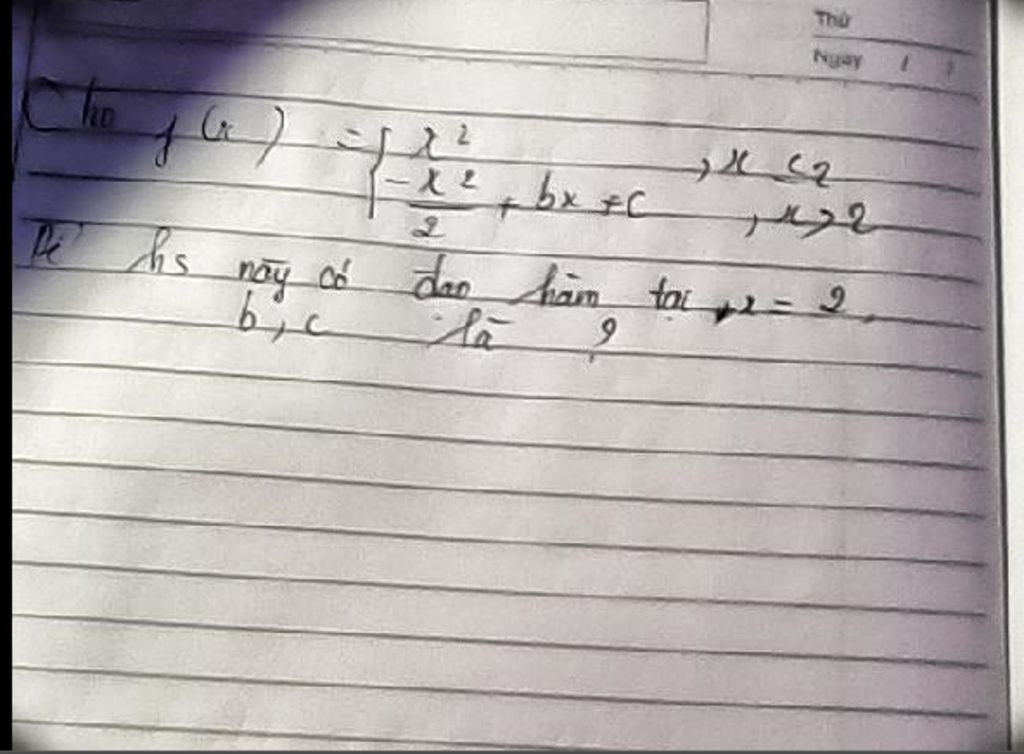 Thứ
Ngày / /
Cho f(x) = { x² , x ≤ 2
-x²/2 + bx + c , x > 2
Để hs này có đạo hàm tại x = 2.
b, c là ?